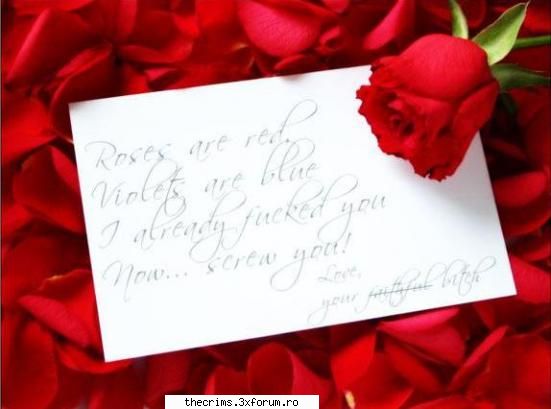 Roses are red,
Violets are blue
I already fucked you
Now... screw you!
Love,
your faithful bitch
thecrims.3xforum.ro